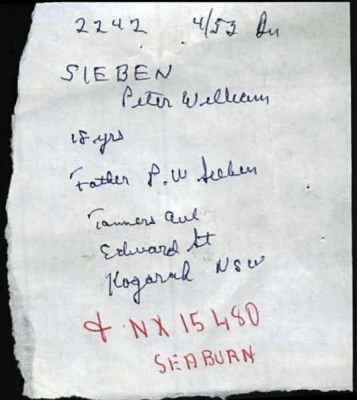 2242 4/53 Du
SIEBEN
Peter William
18 yrs
Father P. W Sieben
Tanners Ave
Edward St
Kogarah NSW
& NX 15480
SEABURN